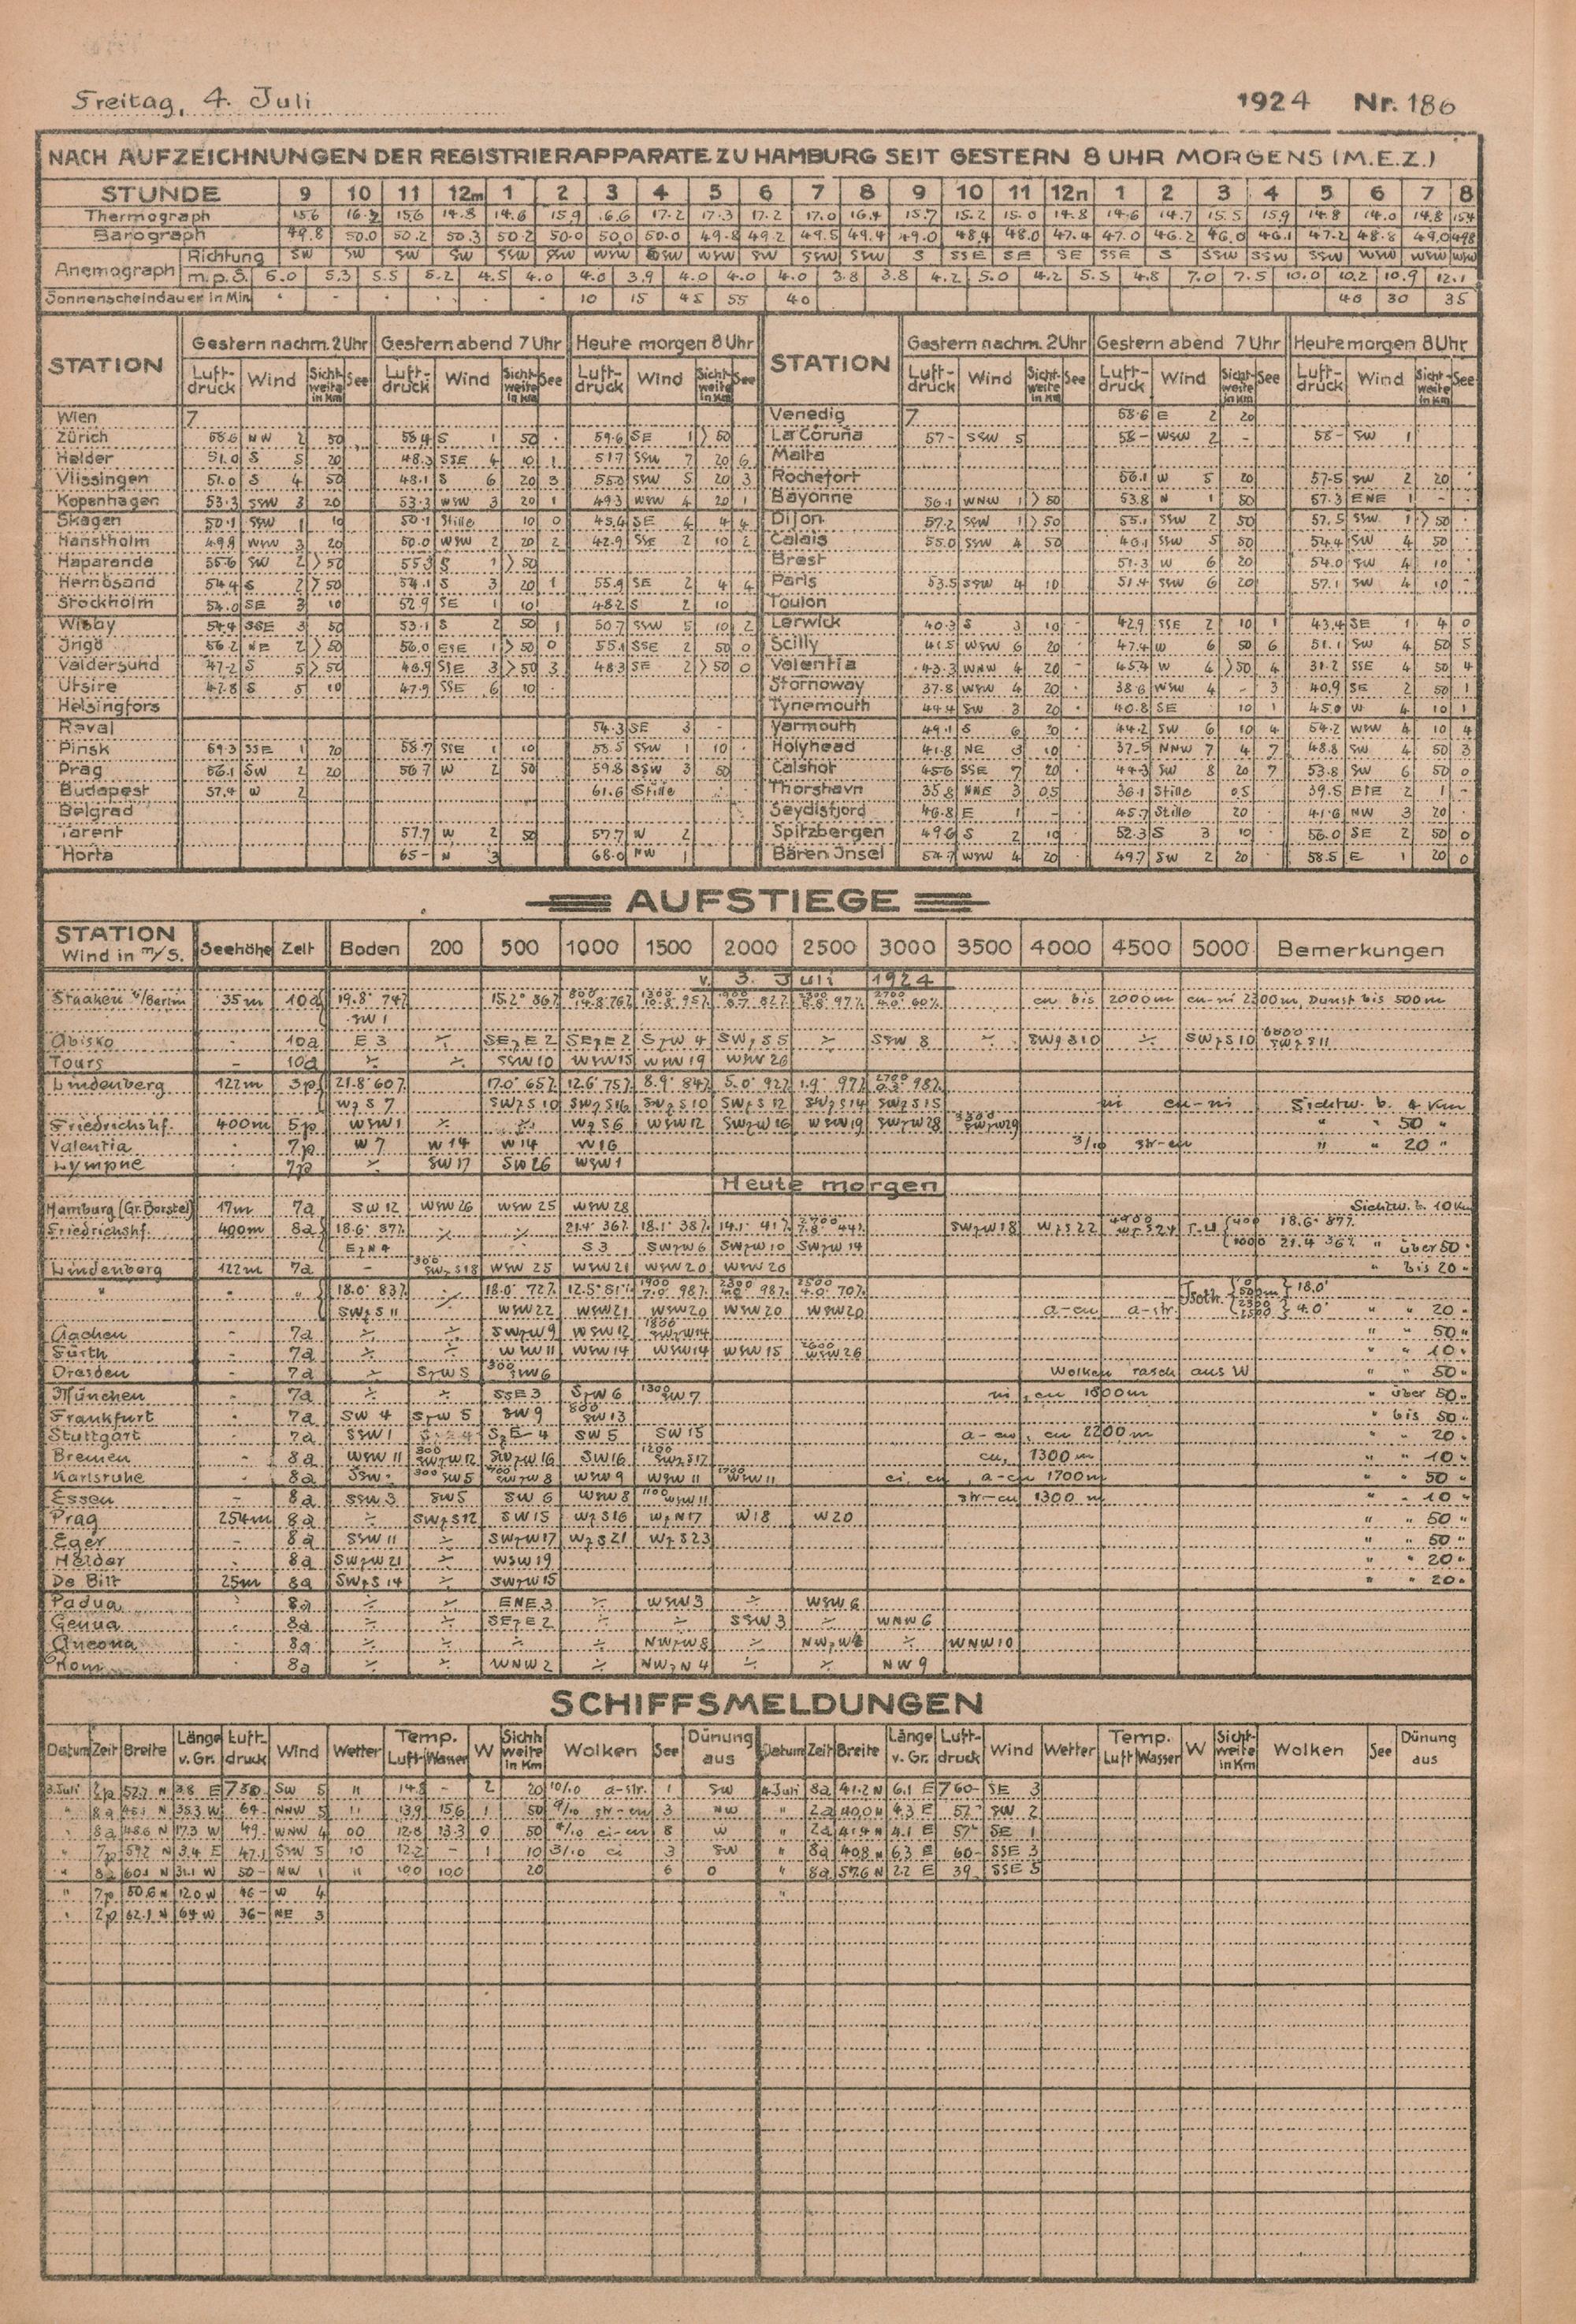 Freitag, 4. Juli 1924 Nr. 186
NACH AUFZEICHNUNGEN DER REGISTRIERAPPARATE ZU HAMBURG SEIT GESTERN 8 UHR MORGENS (M.E.Z.)
STUNDE 9 10 11 12m 1 2 3 4 5 6 7 8 9 10 11 12n 1 2 3 4 5 6 7 8
Thermograph 15.6 16.2 15.6 14.8 14.6 15.9 16.6 17.2 17.3 17.2 17.0 16.4 15.7 15.2 15.0 14.8 14.6 14.7 15.5 15.9 14.8 14.0 14.8 15.4
Barograph 49.8 50.0 50.2 50.3 50.2 50.0 50.0 50.0 49.8 49.2 49.5 49.4 49.0 48.4 48.0 47.4 47.0 46.2 46.0 46.1 47.2 48.8 49.0 49.8
Anemograph Richtung SW SW SW SW SSW SW WSW SW WSW SW SSW SSW S SSE SE SE SSE S SSW SSW SSW WSW WSW WSW
m.p.S. 6.0 5.3 5.5 5.2 4.5 4.0 4.0 3.9 4.0 4.0 4.0 3.8 3.8 4.2 5.0 4.2 5.3 4.8 7.0 7.5 10.0 10.2 10.9 12.1
Sonnenscheindauer in Min. 10 15 45 55 40 40 30 35
STATION Gestern nachm. 2 Uhr Gestern abend 7 Uhr Heute morgen 8 Uhr STATION Gestern nachm. 2 Uhr Gestern abend 7 Uhr Heute morgen 8 Uhr
Luft-druck Wind Sicht-weite in Km See Luft-druck Wind Sicht-weite in Km See Luft-druck Wind Sicht-weite in Km See Luft-druck Wind Sicht-weite in Km See Luft-druck Wind Sicht-weite in Km See Luft-druck Wind Sicht-weite in Km See
Wien 7 Venedig 7 58.6 E 2 20
Zürich 58.6 NW 2 50 58.4 S 1 50 59.6 SE 1 >50 La Coruña 57- SSW 5 58- WSW 2 - 58- SW 1
Helder 51.0 S 5 20 48.3 SSE 4 10 1 51.7 SSW 7 20 6 Malta
Vlissingen 51.0 S 4 50 48.1 S 6 20 3 55.0 SSW 5 20 3 Rochefort 56.1 W 5 20 57.5 SW 2 20
Kopenhagen 53.3 SSW 3 20 53.3 WSW 3 20 1 49.3 WSW 4 20 1 Bayonne 56.1 WNW 1 >50 53.8 N 1 50 57.3 ENE 1 -
Skagen 50.1 SSW 1 10 50.1 Stille 10 0 45.4 SE 4 4 4 Dijon 57.2 SSW 1 >50 55.1 SSW 2 50 57.5 SSW 1 >50
Hanstholm 49.9 WSW 3 20 50.0 WSW 2 20 2 42.9 SSE 2 10 2 Calais 55.0 SSW 4 50 46.1 SSW 5 50 54.4 SW 4 50
Haparanda 55.6 SW 2 >50 55.3 S 1 >50 Brest 51.3 W 6 20 54.0 SW 4 10
Hernösand 54.4 S 2 >50 54.1 S 3 20 1 55.9 SE 2 4 4 Paris 53.5 SSW 4 10 51.4 SSW 6 20 57.1 SW 4 10
Stockholm 54.0 SE 3 10 52.9 SE 1 10 48.2 S 2 10 Toulon
Wisby 54.4 SSE 3 50 53.1 S 2 50 1 50.7 SSW 5 10 2 Lerwick 40.3 S 3 10 42.9 SSE 2 10 1 43.4 SE 1 4 0
Ingö 56.2 NE 2 >50 56.0 ESE 1 >50 0 55.1 SSE 2 50 0 Scilly 41.5 WSW 6 20 47.4 W 6 50 6 51.1 SW 4 50 5
Valdersund 47.2 S 5 >50 46.9 SSE 3 >50 3 48.3 SE 2 >50 0 Valentia 43.3 WNW 4 20 - 45.4 W 4 >50 4 31.2 SSE 4 50 4
Utsire 47.8 S 5 10 47.9 SSE 6 10 Stornoway 37.8 WSW 4 20 38.6 WSW 4 - 3 40.9 SE 2 50 1
Helsingfors Tynemouth 44.4 SW 3 20 40.8 SE 10 1 45.0 W 4 10 1
Reval 54.3 SE 3 - Yarmouth 49.1 S 6 20 44.2 SW 6 10 4 54.2 WSW 4 10 4
Pinsk 59.3 SSE 1 20 58.7 SSE 1 10 58.5 SSW 1 10 Holyhead 41.8 NE 3 10 37.5 NNW 7 4 7 48.8 SW 4 50 3
Prag 56.1 SW 2 20 56.7 W 2 50 59.8 SSW 3 50 Calshot 45.6 SSE 7 20 44.3 SW 8 20 7 53.8 SW 6 50 0
Budapest 57.4 W 2 61.6 Stille Thorshavn 35.8 NNE 3 0.5 36.1 Stille 0.5 39.5 ESE 2 1 -
Belgrad Seydisfjord 46.8 E 1 - 45.7 Stille 20 41.6 NW 3 20
Tarent 57.7 W 2 50 57.7 W 2 Spitzbergen 49.6 S 2 10 52.3 S 3 10 56.0 SE 2 50 0
Horta 65- N 3 68.0 NW 1 Bären Insel 54.7 WSW 4 20 49.7 SW 2 20 58.5 E 1 20 0
AUFSTIEGE
STATION Wind in m/S. Seehöhe Zeit Boden 200 500 1000 1500 2000 2500 3000 3500 4000 4500 5000 Bemerkungen
v. 3. Juli 1924
Staaken b/Berlin 35m 10a 19.8° 74% 15.2° 86% 800 14.8 76% 1300 10.8 95% 8.7 82% 5.8 97% 2700 4.0° 60% cu bis 2000m cu-ni 2300m, Dunst bis 500m
SW 1
Abisko - 10a E 3 ÷ SEzE 2 SEzE 2 SzW 4 SWzS 5 ÷ SSW 8 ÷ SWzS 10 ÷ SWzS 10 6000 SWzS 11
Tours - 10a ÷ ÷ SSW 10 WSW 15 WSW 19 WSW 26
Lindenberg 122m 3p 21.8° 60% 17.0° 65% 12.6° 75% 8.9° 84% 5.0° 92% 1.9° 97% 2700 0.3° 98%
WzS 7 SWzS 10 SWzS 16 SWzS 10 SWzS 12 SWzS 14 SWzS 15 ni cu-ni Sichtw. b. 4 Km
Friedrichshf. 400m 5p WSW 1 ÷ ÷ WzS 6 WSW 12 SWzW 16 WSW 19 SWzW 28 3300 SWzW 29 " " 50 "
Valentia - 7p W 7 W 14 W 14 W 16 3/10 str-cu " " 20 "
Lympne 7p ÷ SW 17 SW 26 WSW 1
Heute morgen
Hamburg (Gr. Borstel) 17m 7a SW 12 WSW 26 WSW 25 WSW 28 Sichtw. b. 10 Km
Friedrichshf. 400m 8a 18.6° 87% ÷ ÷ 21.4° 36% 18.1° 38% 14.1° 41% 2700 7.8° 44% SWzW 18 WzS 22 4400 WzS 24 T-U 400 18.6° 87%
EzN 4 S 3 SWzW 6 SWzW 10 SWzW 14 1000 21.4 36% " über 50 "
Lindenberg 122m 7a - 300 SWzS 18 WSW 25 WSW 21 WSW 20 WSW 20 " bis 20 "
" " " 18.0° 83% ÷ 18.0° 72% 12.5° 81% 1900 7.0° 98% 2300 4.0° 98% 2500 4.0° 70% Isoth. 18.0°
SWzS 11 WSW 22 WSW 21 WSW 20 WSW 20 WSW 20 a-cu a-str. 2300 2500 4.0° " " 20 "
Aachen - 7a ÷ ÷ SWzW 9 WSW 12 1800 SWzW 14 " " 50 "
Fürth - 7a ÷ ÷ WSW 11 WSW 14 WSW 14 WSW 15 2600 WSW 26 " " 10 "
Dresden - 7a ÷ SzW 5 300 SW 6 Wolken rasch aus W " " 50 "
München 7a ÷ ÷ SSE 3 SzW 6 1300 SW 7 ni, cu 1800m " über 50 "
Frankfurt - 7a SW 4 SzW 5 SW 9 800 SW 13 " bis 50 "
Stuttgart - 7a SSW 1 SzE 4 SW 5 SW 15 a-cu, cu 2200m " " 20 "
Bremen - 8a WSW 11 300 SWzW 12 SWzW 16 SW 16 1200 SWzS 17 cu, 1300m " " 10 "
Karlsruhe - 8a SSW 300 SW 5 SWzW 8 WSW 9 WSW 11 1700 WSW 11 ci, cu, a-cu 1700m " " 50 "
Essen - 8a SSW 3 SW 5 SW 6 WSW 8 1100 WSW 11 str-cu 1300 m " " 10 "
Prag 254m 8a ÷ SWzS 12 SW 15 WzS 16 WzN 17 W 18 W 20 " " 50 "
Eger - 8a SSW 11 ÷ SWzW 17 WzS 21 WzS 23 " " 50 "
Helder - 8a SWzW 21 ÷ WSW 19 " " 20 "
De Bilt 25m 8a SWzS 14 ÷ SWzW 15 " " 20 "
Padua 8a ÷ ENE 3 ÷ WSW 3 WSW 6
Genua 8a ÷ SEzE 2 ÷ ÷ SSW 3 ÷ WNW 6
Ancona 8a ÷ ÷ ÷ ÷ NWzW 8 ÷ NWzW ÷ WNW 10
Rom 8a ÷ ÷ WNW 2 ÷ NWzN 4 ÷ ÷ NW 9
SCHIFFSMELDUNGEN
Datum Zeit Breite Länge v. Gr. Luft-druck Wind Wetter Temp. Luft Wasser W Sicht-weite in Km Wolken See Dünung aus Datum Zeit Breite Länge v. Gr. Luft-druck Wind Wetter Temp. Luft Wasser W Sicht-weite in Km Wolken See Dünung aus
3. Juli 2p 52.7 N 3.8 E 750 SW 5 11 14.8 - 2 20 10/10 a-str. 1 SW 4. Juli 8a 41.2 N 6.1 E 760- SE 3
" 8a 45.1 N 35.3 W 64- NNW 5 11 13.9 15.6 1 50 9/10 str-cu 3 NW " 2a 40.0 N 4.3 E 57- SW 2
" 8a 48.6 N 17.3 W 49- WNW 4 00 12.8 13.3 0 50 ci-cu 8 W " 2a 41.4 N 4.1 E 57- SE 1
" 7p 59.2 N 3.4 E 47.1 SSW 5 10 12.2 - 1 10 3/10 ci 3 SW " 8a 40.8 N 6.3 E 60- SSE 3
" 8a 60.1 N 31.1 W 50- NW 1 11 10.0 10.0 20 6 0 " 8a 57.6 N 2.2 E 39 SSE 5
" 7p 50.6 N 12.0 W 46- W 4 "
" 2p 62.1 N 6.4 W 36- NE 3